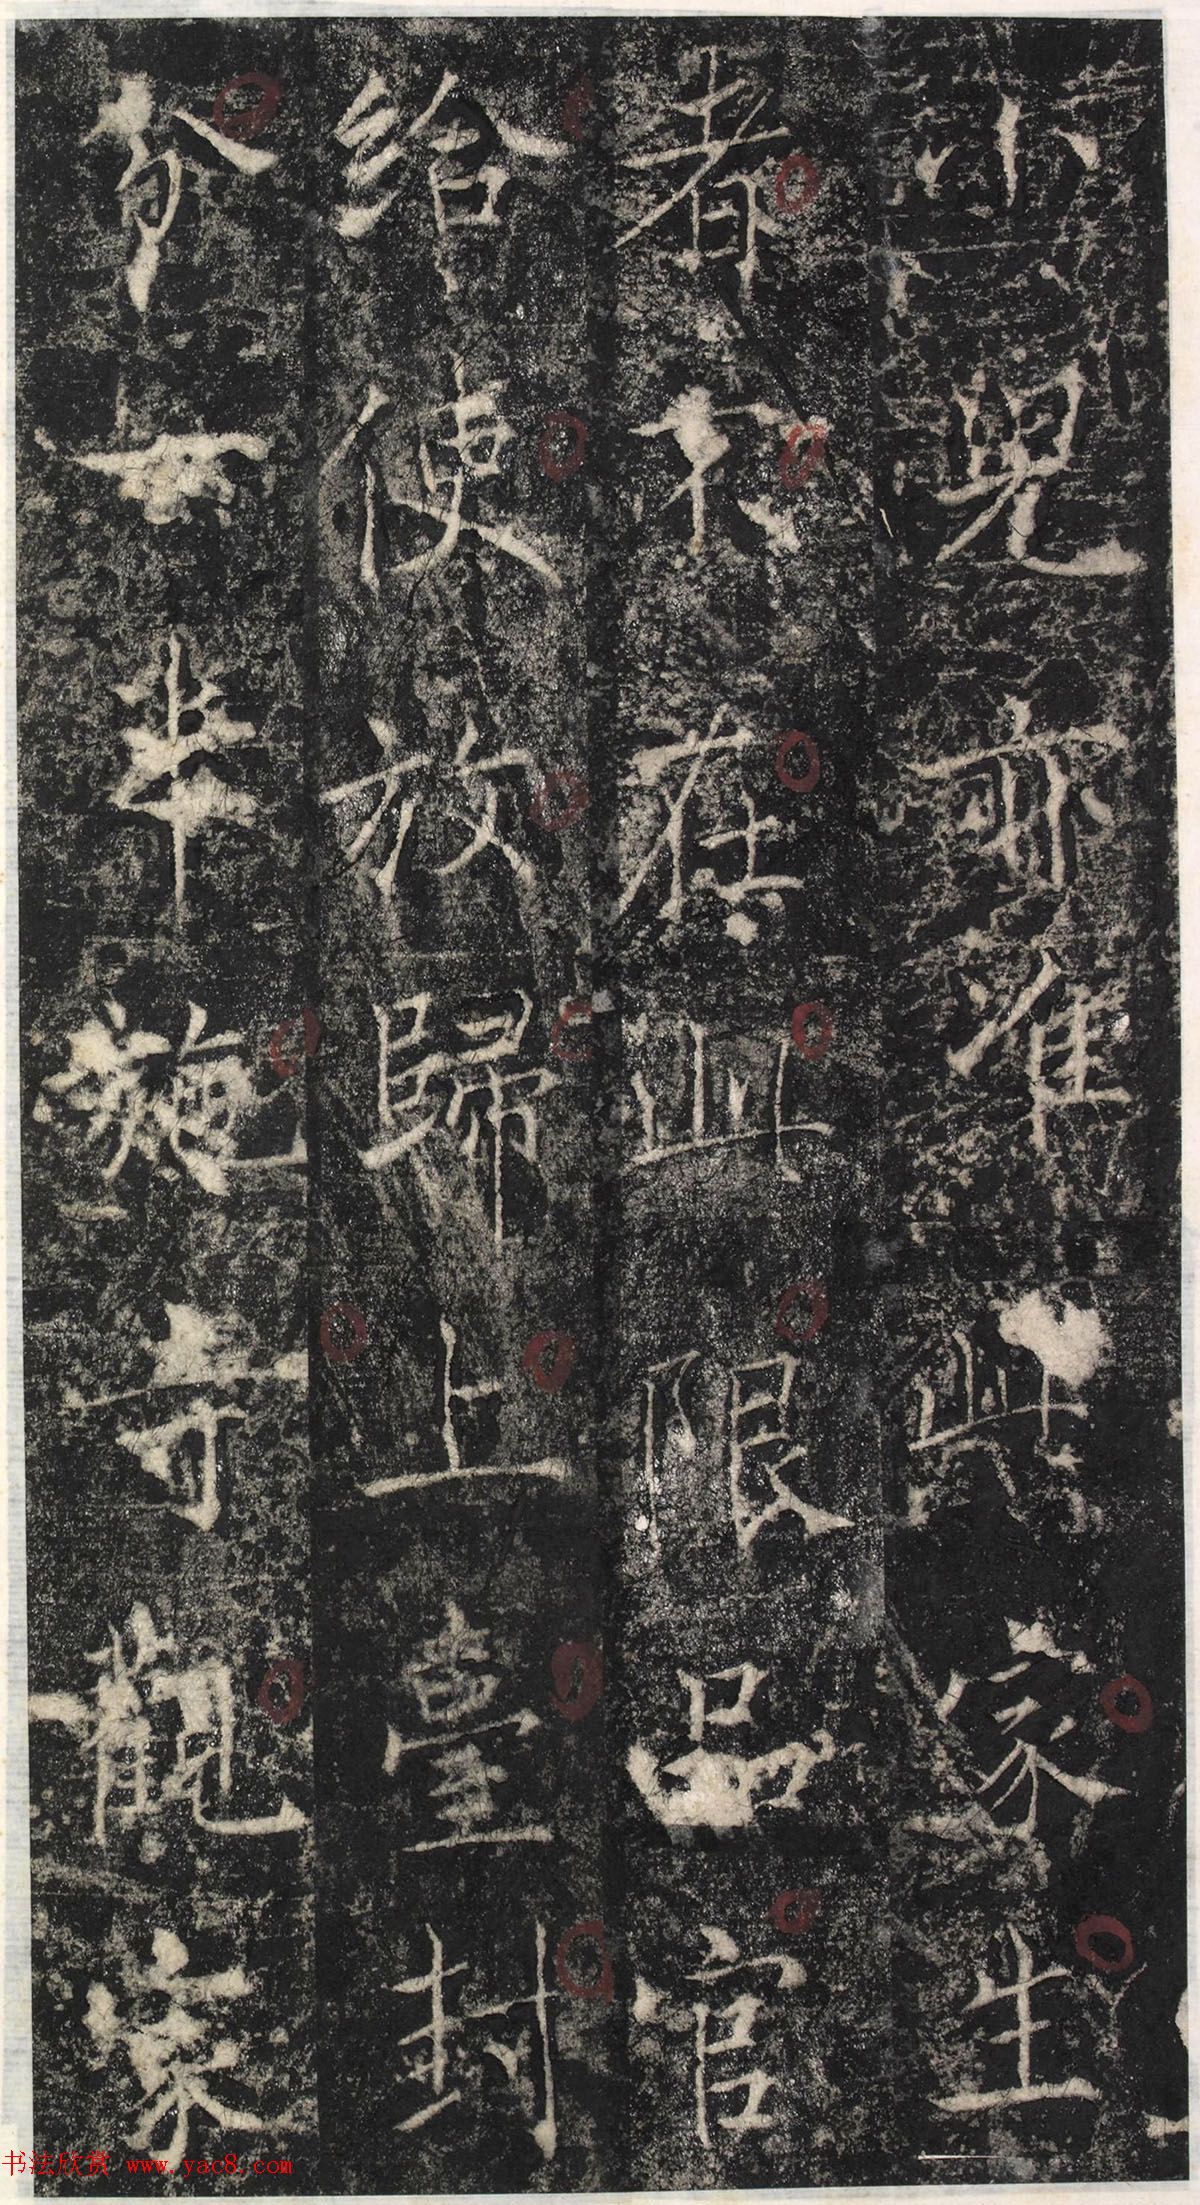 小兒亦准與家生
者不在此限品官
給使放歸上臺封
分一半施寺觀家
书法欣赏 www.yac8.com